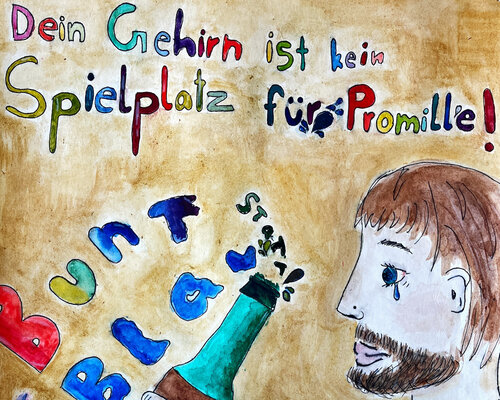 Dein Gehirn ist kein
Spielplatz für Promille!
Bunt
statt
Blau